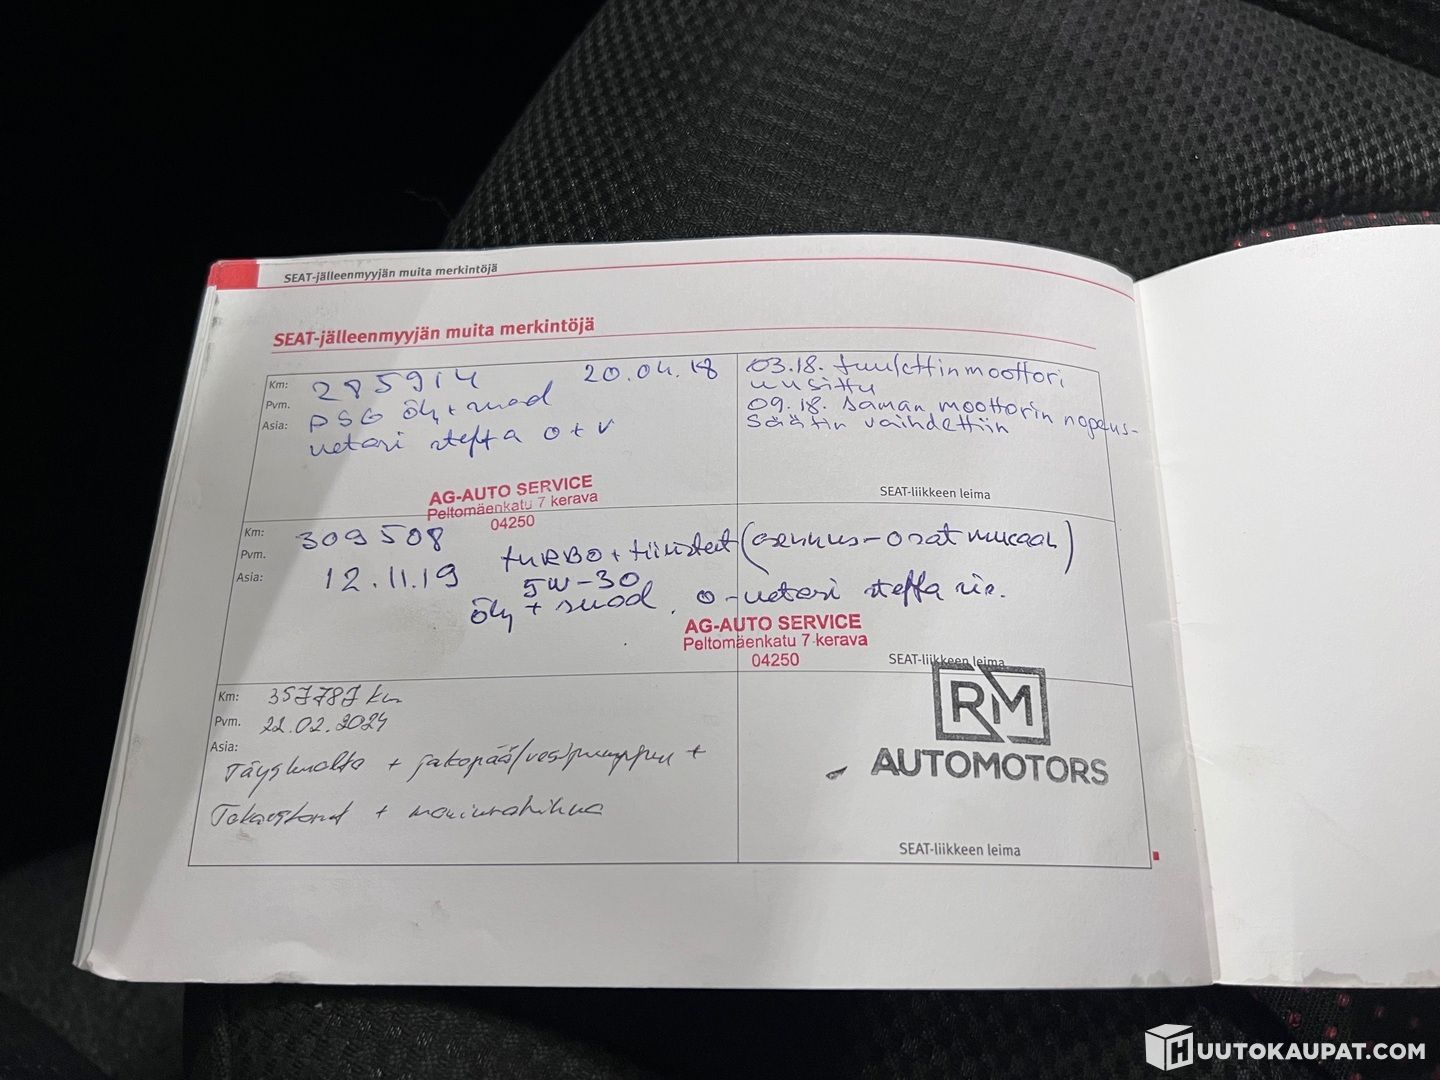 SEAT-jälleenmyyjän muita merkintöjä
SEAT-jälleenmyyjän muita merkintöjä
Km: 285914 20.04.18
Pvm.
Asia: DSG öljy + suod
vetari steffa o + v
AG-AUTO SERVICE
Peltomäenkatu 7 kerava
04250
03.18. tuulettinmoottori
uusittu
09.18. saman moottorin nopeus-
säätin vaihdettiin
SEAT-liikkeen leima
Km: 309508
Pvm.
Asia: 12.11.19
TURBO + tiivisteet (asennus-osat mukaan)
5W-30
öljy + suod. o-vetari steffa
AG-AUTO SERVICE
Peltomäenkatu 7 kerava
04250
SEAT-liikkeen leima
Km: 357787 km
Pvm. 22.02.2024
Asia:
Täyshuolto + jakopää/vesipumppu +
+ moniurahihna
RM
AUTOMOTORS
SEAT-liikkeen leima
HUUTOKAUPAT.COM